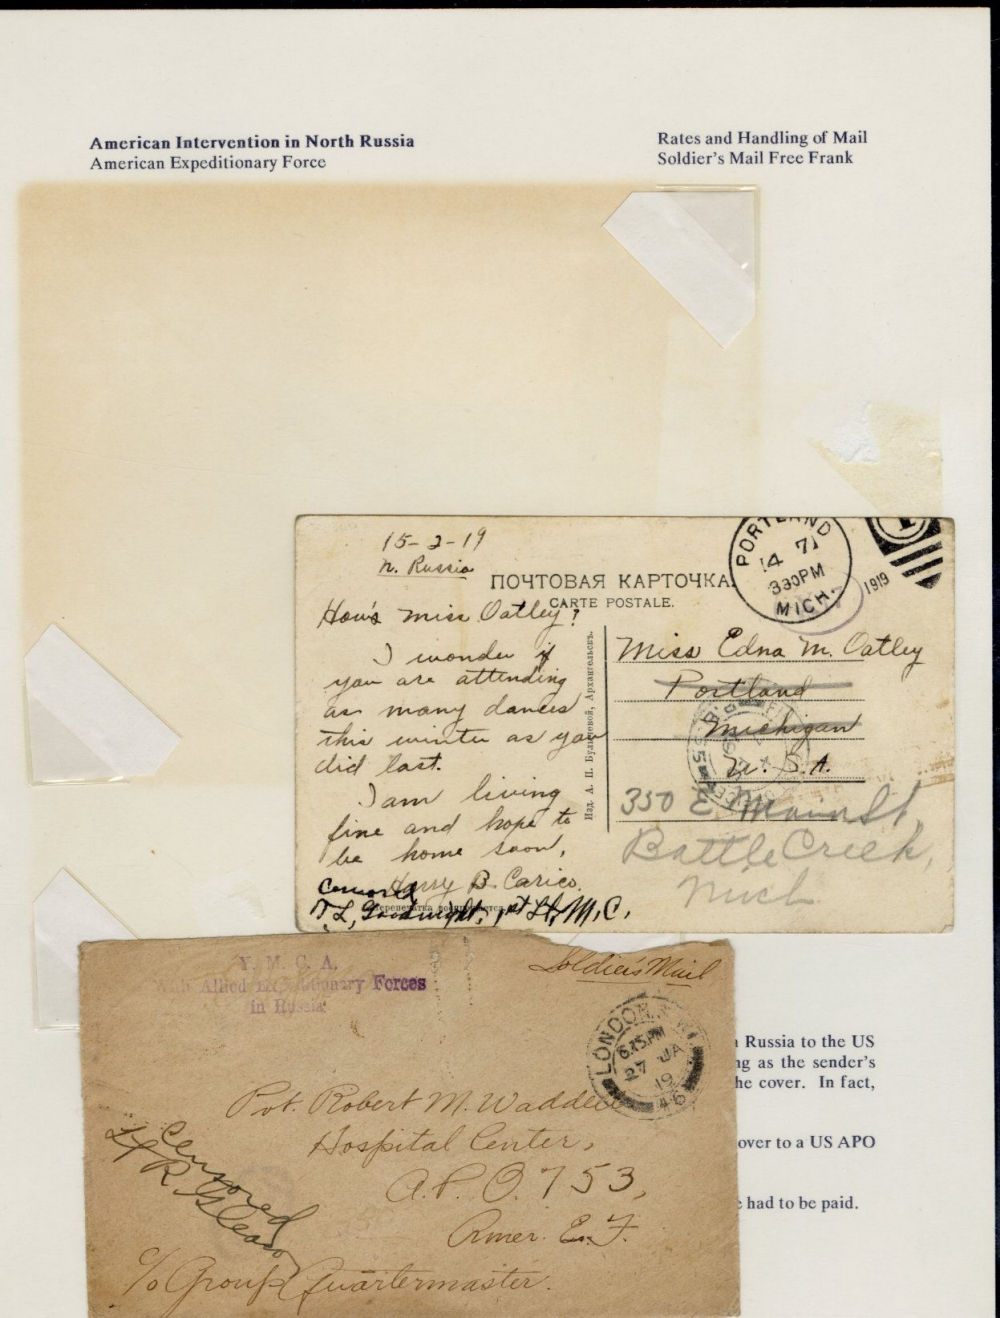 American Intervention in North Russia
American Expeditionary Force
Rates and Handling of Mail
Soldier's Mail Free Frank
15-2-19
N. Russia
ПОЧТОВАЯ КАРТОЧКА.
CARTE POSTALE.
PORTLAND
14 71
330PM
MICH.
1919
How's Miss Oatley?
I wonder if
you are attending
as many dances
this winter as you
did last.
I am living
fine and hope to
be home soon,
Harry B. Carico.
Censored
T. L. Goodnight, 1st Lt, M.C.
Изд. А. П. Булычевой, Архангельскъ.
Miss Edna M. Oatley
Portland
Michigan
U.S.A.
350 E Main St,
Battle Creek,
Mich
Y. M. C. A.
With Allied Expeditionary Forces
in Russia
Soldier's Mail
LONDON.
6.15.PM
27 JA
19
46
Pvt. Robert M. Waddell
Hospital Center,
A.P.O. 753,
Amer. E.F.
Censored
c/o Group Quartermaster.
Russia to the US
ng as the sender's
he cover. In fact,
over to a US APO
had to be paid.